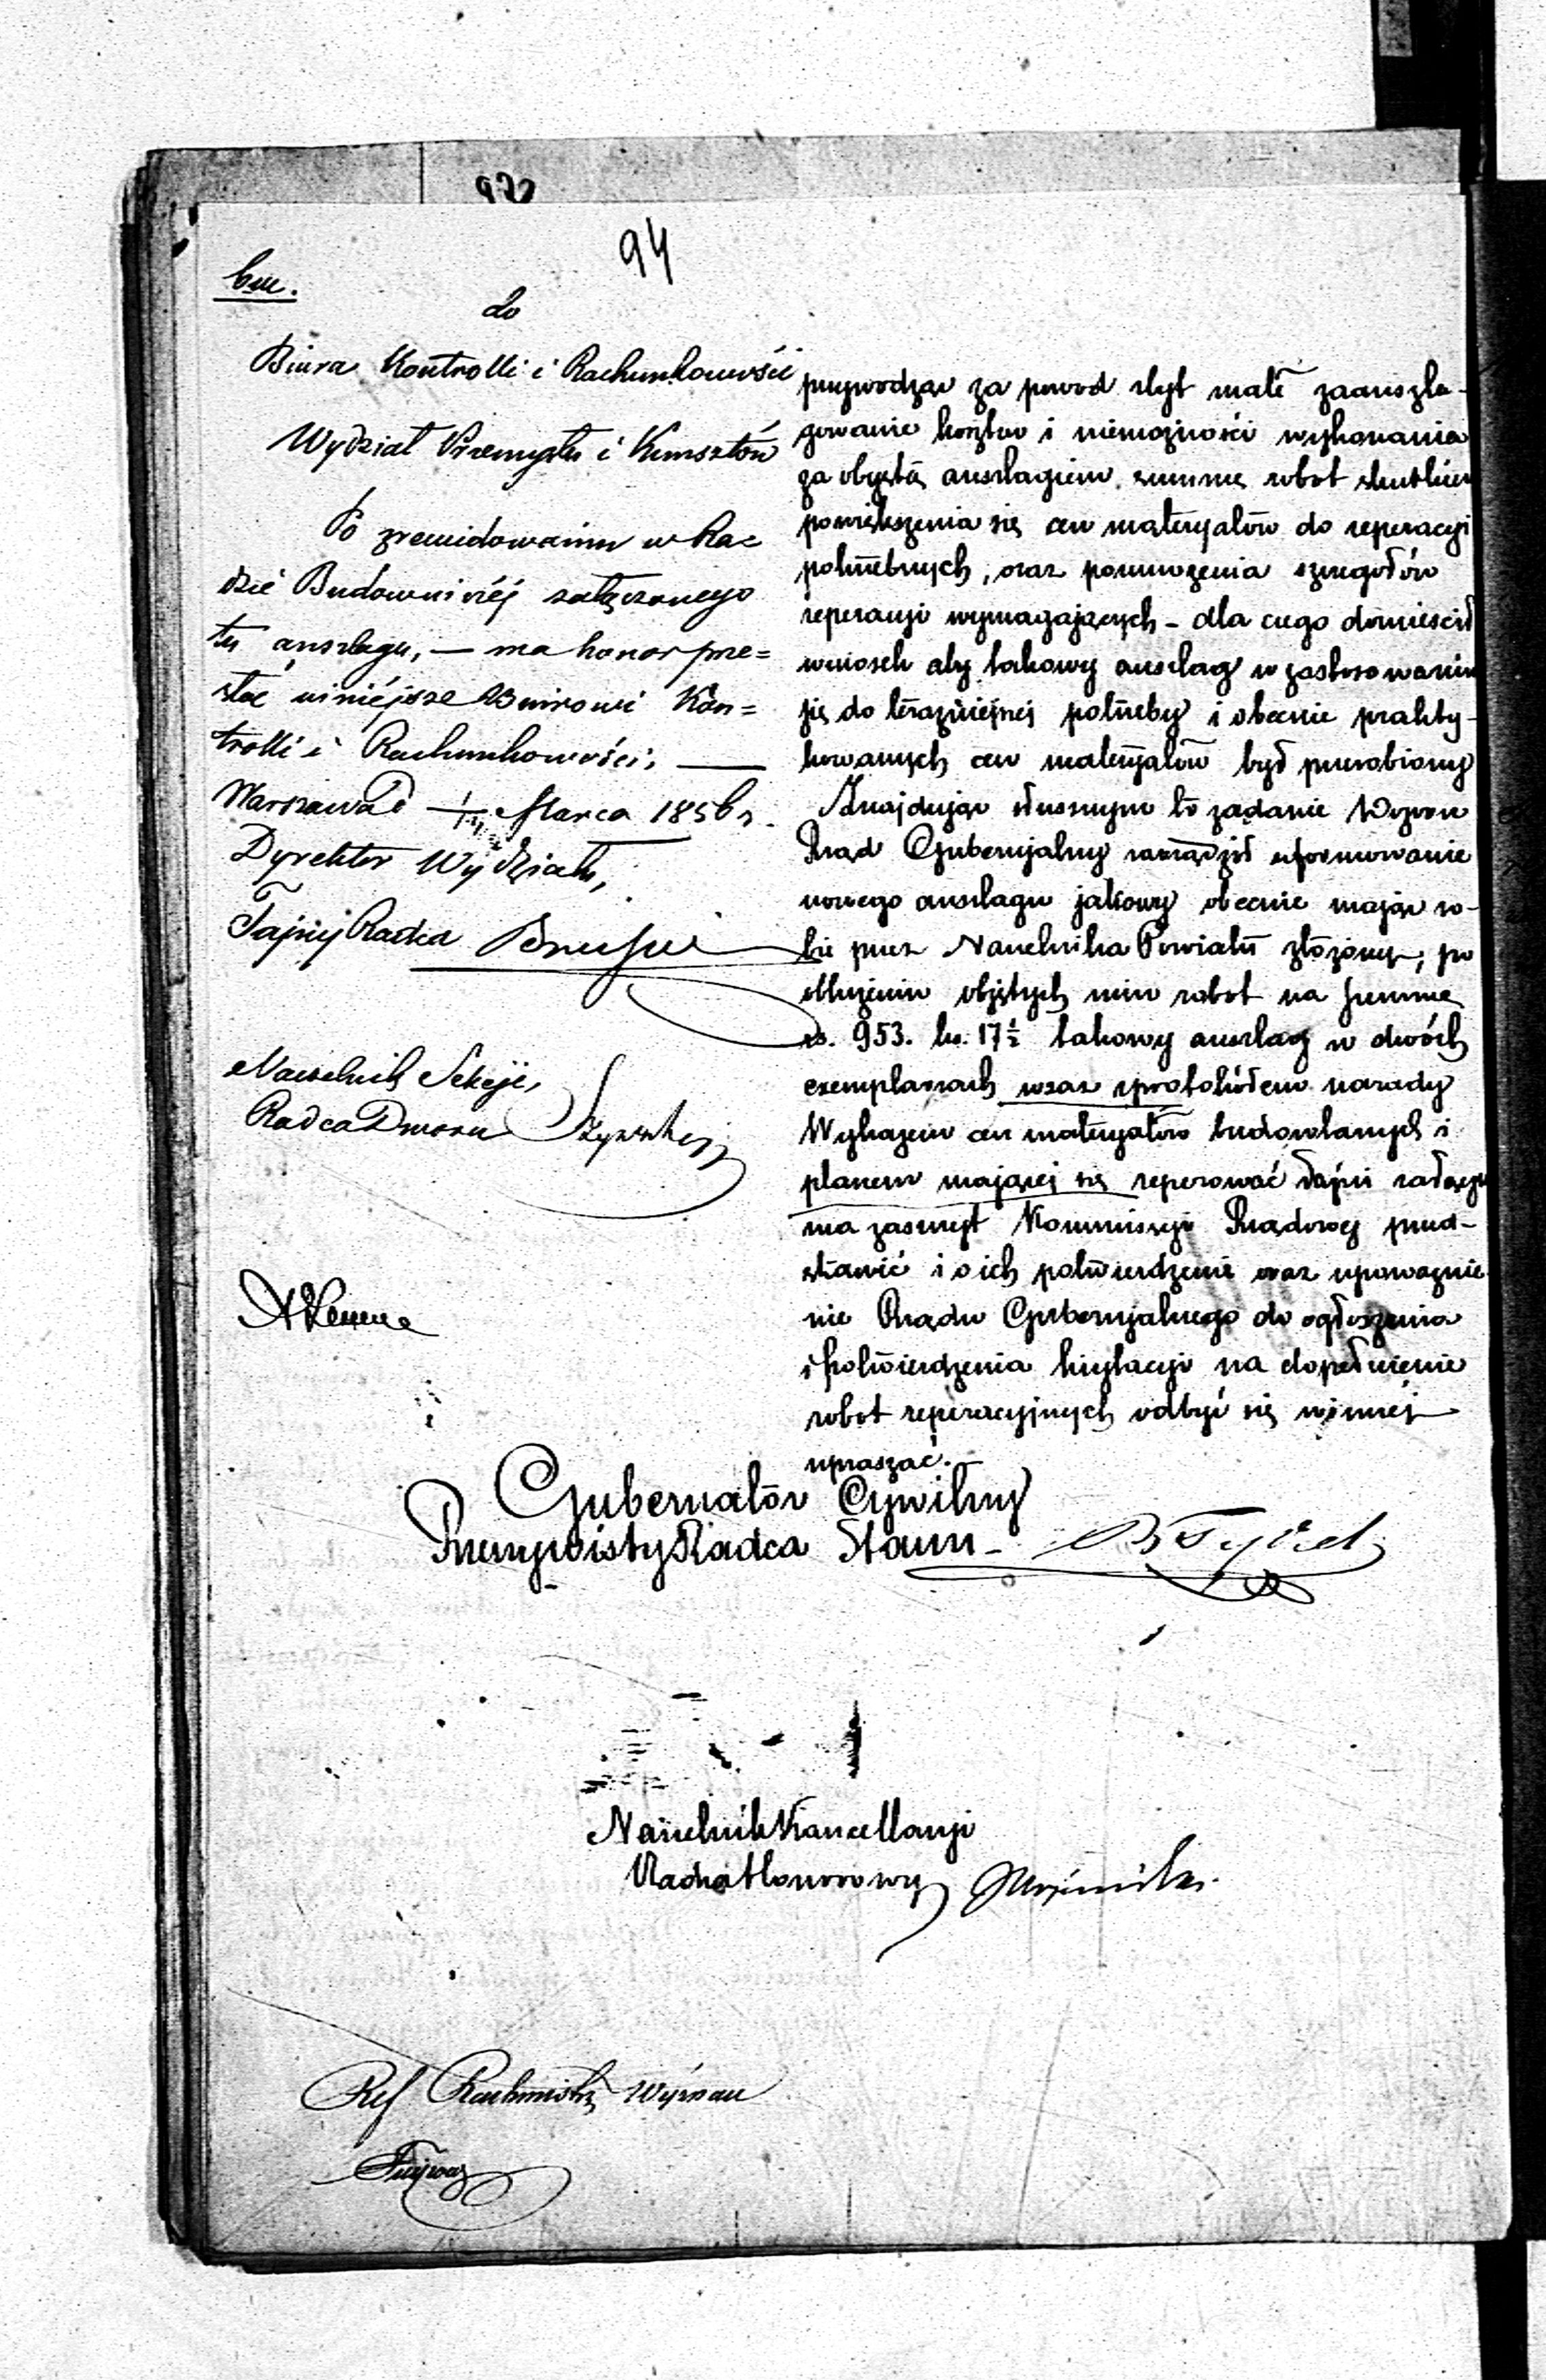 94
do
Biura Kontrolli i Rachunkowości
Wydział Przemysłu i Kunsztów
Po zrewidowaniu w Ra=
dzie Budowniczéj załączonego
tu anszlagu, — ma honor prze=
słać niniejsze Biurowi Kon=
trolli i Rachunkowości, —
Warszawa d Marca 1856 r.
Dyrektor Wydziału,
Tajny Radca
Naczelnik Sekcji,
Radca Dworu
przywodząc za powod zbyt małe zaanszla-
gowanie kosztow i niemożności wykonania
za objętą anszlagiem summę robot skutkiem
powiększenia się cen materyałów do reperacyi
potrzebnych, oraz pomnożenia szczegołów
reperacyi wymagających - dla czego domieścił
wniosek aby takowy anszlag w zastosowaniu
się do teraźniejszej potrzeby i obecnie prakty-
kowanych cen materyałów był przerobiony
Znajdując słusznym to żądanie
Rząd Gubernjalny zarządził uformowanie
nowego anszlagu jakowy obecnie mając so-
bie przez Naczelnika Powiatu złożony, po
obliczeniu objętych nim robot na summę
rs. 953. ko. 17½ takowy anszlag w dwóch
exemplarzach wraz z protokółem narady
Wykazem cen materyałów budowlanych i
planem mającej się reperować stajni załączyć
ma zaszczyt Kommissyi Rządowej przed-
stawić i o ich potwierdzenie oraz upoważnie
nie Rządu Gubernjalnego do ogłoszenia
i potwierdzenia licytacyi na dopełnienie
robot reperacyjnych odbyć się winnej
upraszać.
Gubernator Cywilny
Rzeczywisty Radca Stanu -
Naczelnik Kancellaryi
Radca Honorowy
Ref